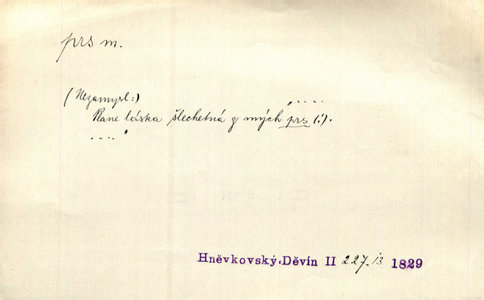 prs m.
(Nezamysl:)
Plane láska šlechetná z mých prs (:).
Hněvkovský, Děvín II 227. 13 1829